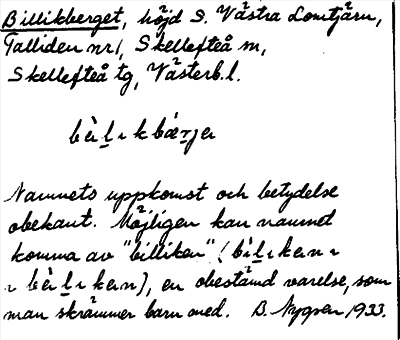 Billikberget, höjd S. Västra Lomtjärn,
Talliden nr 1, Skellefteå m,
Skellefteå tg, Västerb. l.
Namnets uppkomst och betydelse
obekant. Möjligen kan namnet
komma av "billiken" (
), en obestämd varelse, som
man skrämmer barn med. B. Nygren 1933.